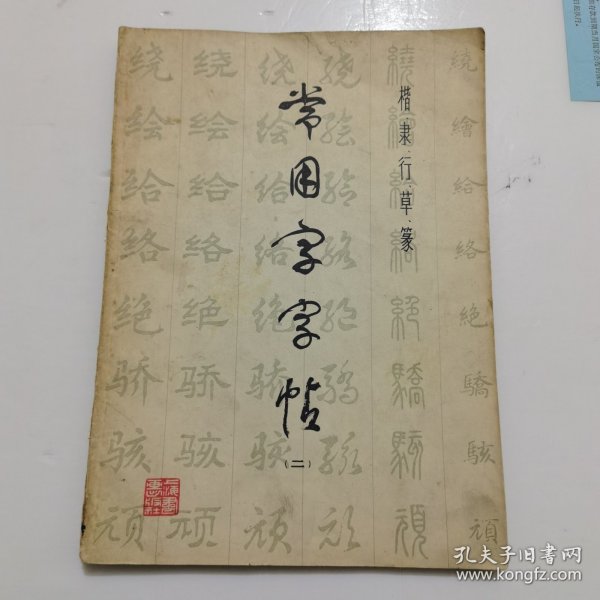 常用字字帖
(二)
楷、隶、行、草、篆
繞 繪 給 絡 絶 驕 駭 頑
繞 繪 給 絡 絕 驕 駭 頑
绕 绘 给 络 绝 骄 骇 顽
绕 绘 给 络 绝 骄 骇 顽
绕 绘 给 络 绝 骄 骇 顽
绕 绘 给 络 绝 骄 骇 顽
上海書画出版社
孔夫子旧书网
www.kongfz.com